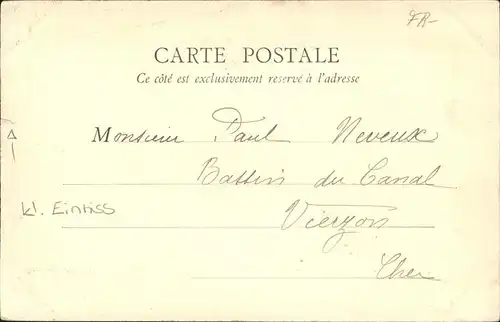 FR-
CARTE POSTALE
Ce côté est exclusivement reservé à l'adresse
Monsieur Paul Neveux
Bassin du Canal
kl. Einriss
Vierzon
Cher